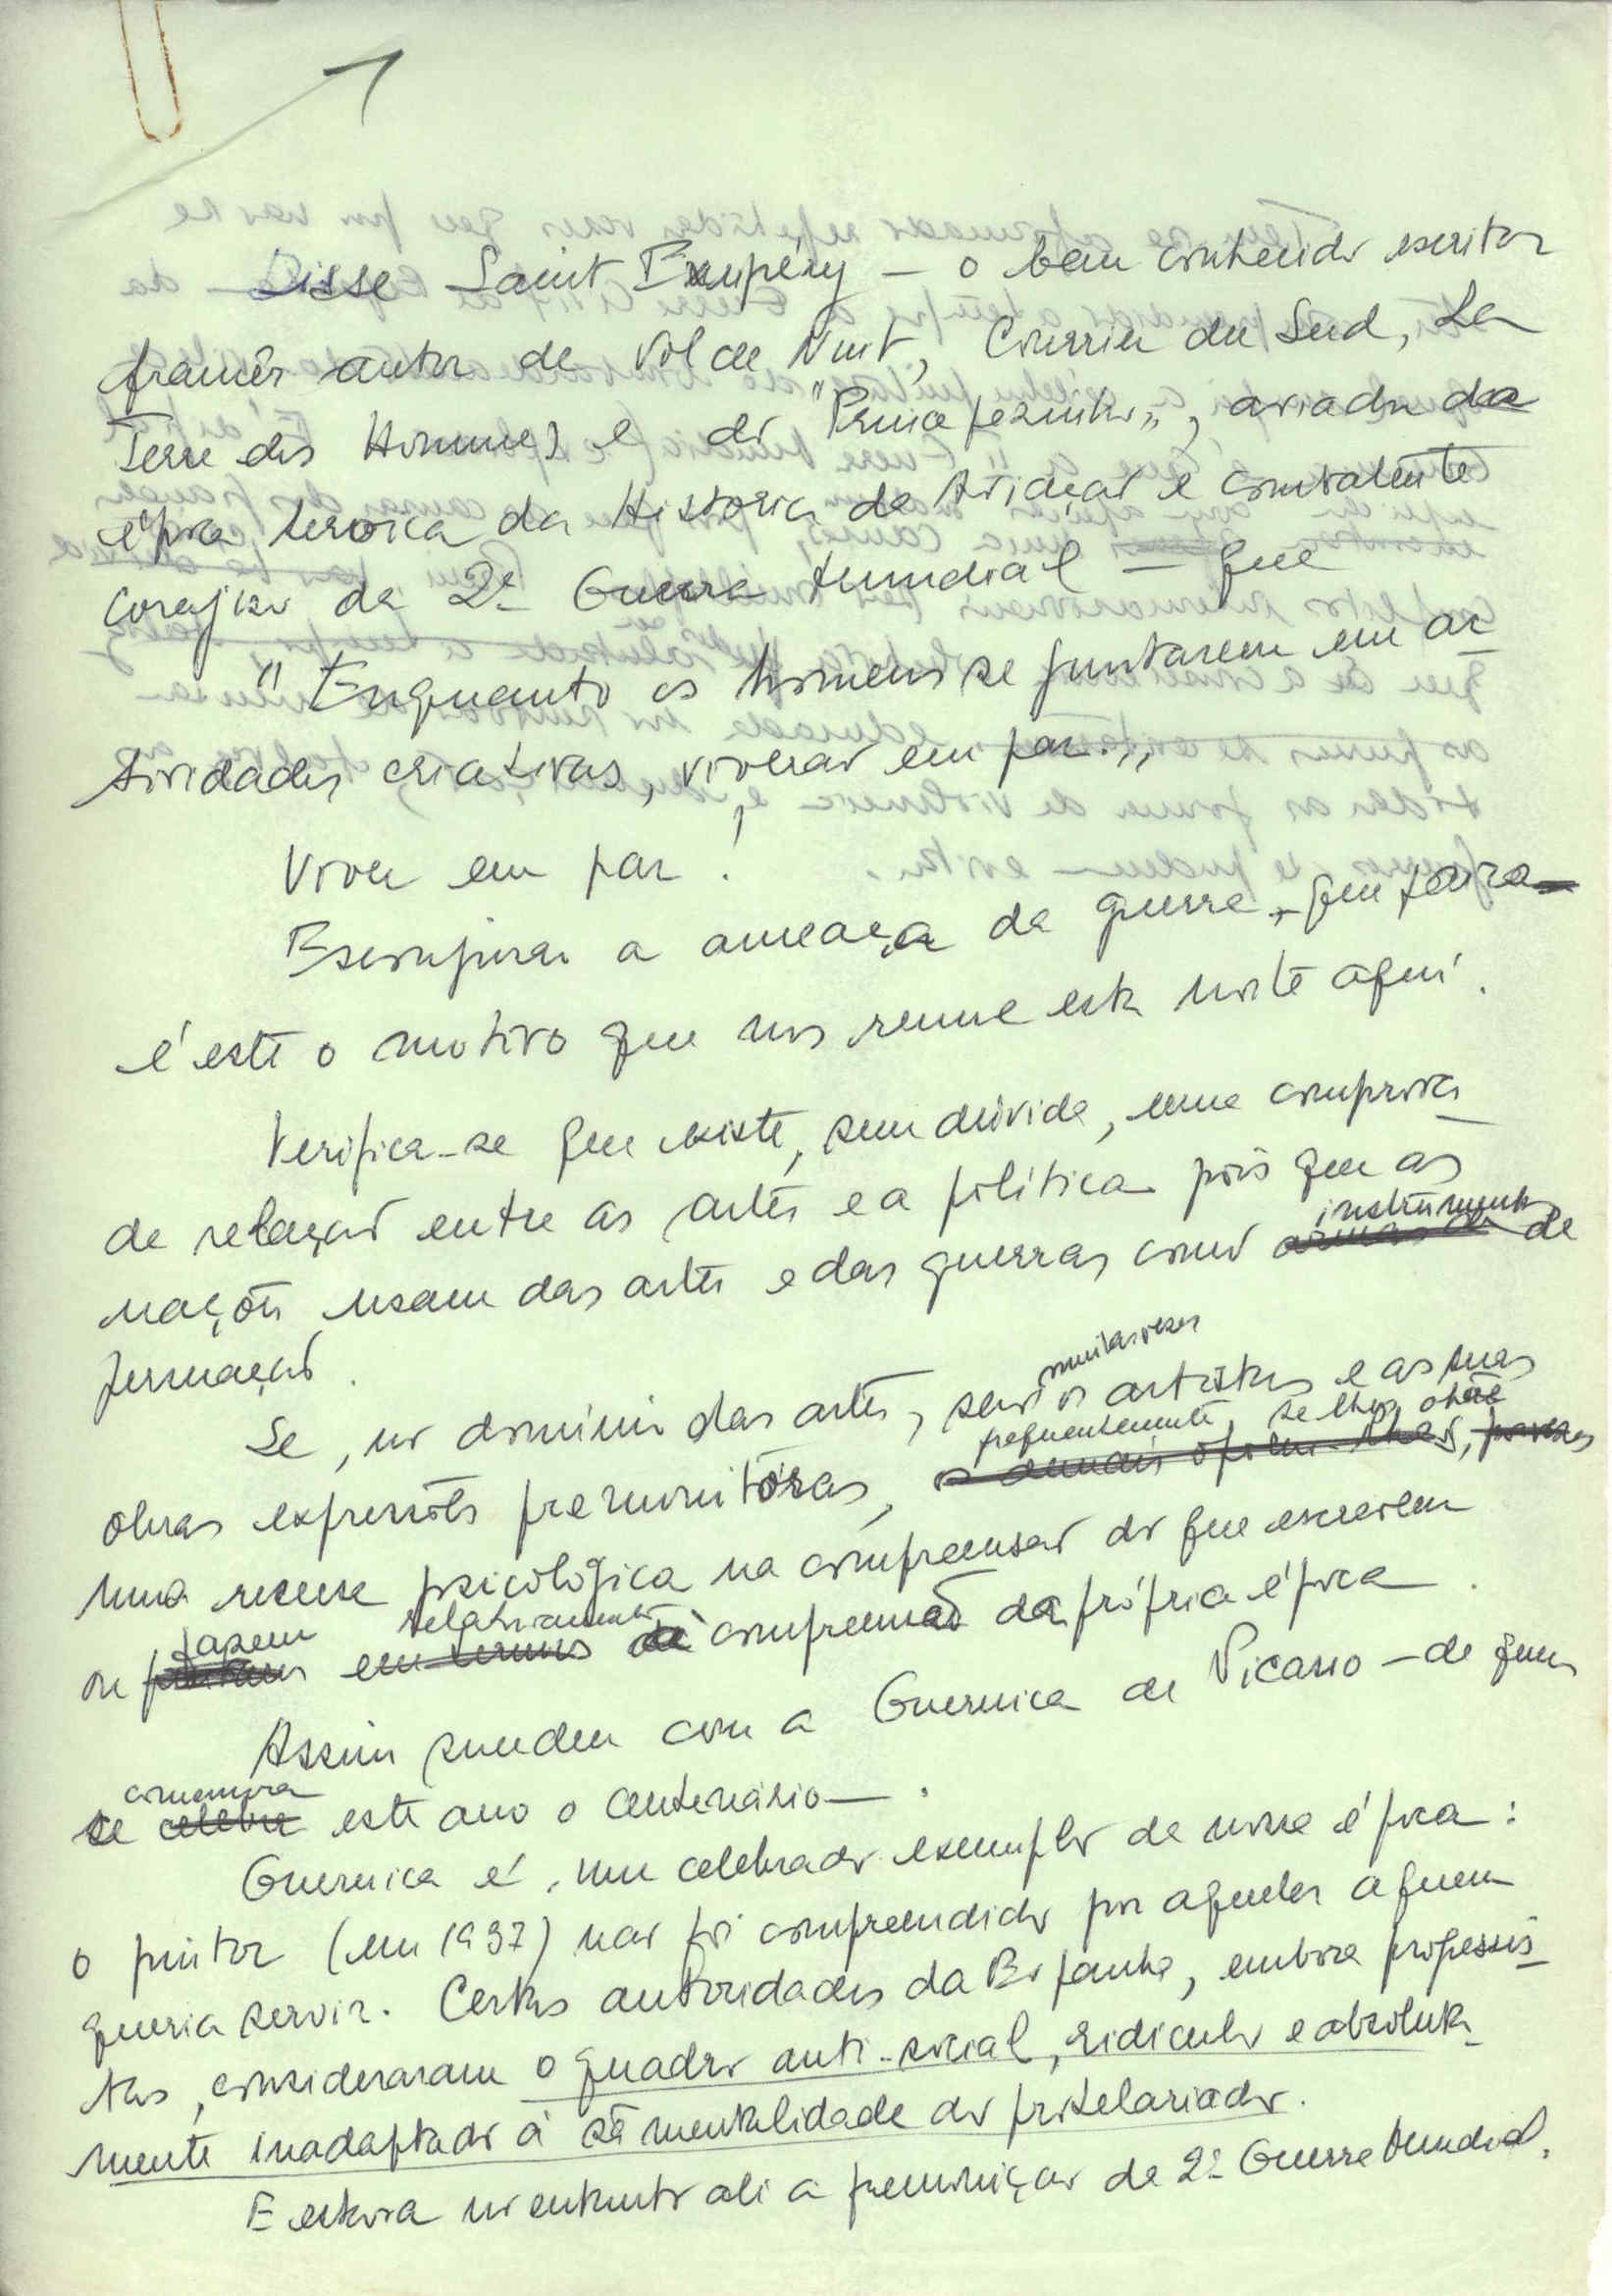 Disse Saint Exupéry – o bem conhecido escritor
francês autor de Vol de Nuit, Courrier du Sud, La
Terre des Hommes e do "Principezinho", aviador da
época heroica da Historia da Aviação e combatente
corajoso da 2ª Guerra Mundial – que
"Enquanto os homens se juntarem em ac-
tividades criativas, viverão em paz."
Viver em paz!
Esconjurar a ameaça da guerra, que
é este o motivo que nos reune esta noite aqui.
Verifica-se que existe, sem dúvida, uma comprova-
da relação entre as artes e a política pois que as
instrumento
nações usam das artes e das guerras como armas de de
persuação.
muitas vezes
Se, no dominio das artes, são os artistas e as suas
frequentemente, se lhes
obras expressões premonitóras, a
uma recusa psicológica na compreensão do que escrevem
fazem relativamente
ou pintam em termos de à compreensão da própria época.
Assim sucedeu com a Guernica de Picasso – de quem
comemora
se celebra este ano o centenário –.
Guernica é, um celebrado exemplo da nossa época:
o pintor (em 1937) não foi compreendido por aqueles a quem
queria servir. Certas autoridades da Espanha, embora progressis-
tas, consideraram o quadro anti-social, ridiculo e absoluta-
mente inadaptado à sã mentalidade do proletariado.
E estava no entanto ali a premonição da 2ª Guerra Mundial.